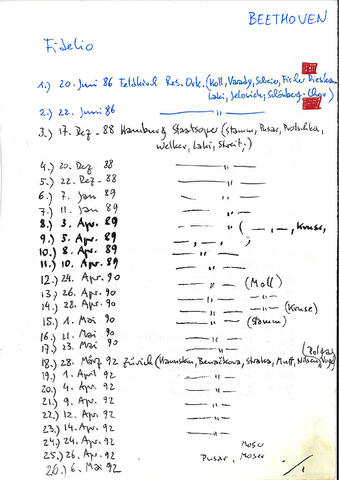 BEETHOVEN
Fidelio
1.) 20. Juni 86 Feldkirch Res. Ork. (Moll, Varady, Scheier, Fischer Dieskau
Laki, Jelosich, Schönberg-Chor)
2.) 22. Juni 86 — " —
3.) 17. Dez - 88 Hamburg Staatsoper (Stamm, Pusar, Protschka,
Welker, Laki, Streit.)
4.) 20. Dez 88 — " —
5.) 22. Dez - 88 — " —
6.) 7. Jan 89 — " —
7.) 11. Jan 89 — " —
8.) 3. Apr. 89 — " — ( —, —, Kruse,
9.) 5. Apr. 89 —, —, — ;
10.) 8. Apr. 89 — " —
11.) 10. Apr. 89 — " —
12.) 24. Apr. 90 — " — (Moll)
13.) 26. Apr. 90 — " — — " —
14.) 28. Apr. 90 — " — (Kruse)
15.) 1. Mai 90 — " — (Stamm)
16.) 21. Mai 90 — " —
17.) 23. Mai 90 — " —
18.) 28. März 92 Zürich (Beňačková, Straka, Muff,
19.) 1. April 92 — " —
20.) 4. Apr. 92 — " —
21.) 9. Apr. 92 — " —
22.) 12. Apr. 92 — " —
23.) 14. Apr. 92 — " —
24.) 24. Apr. 92 — " — Moser
25.) 26. Apr. 92 Pusar, Moser
26.) 6. Mai 92 ·/1